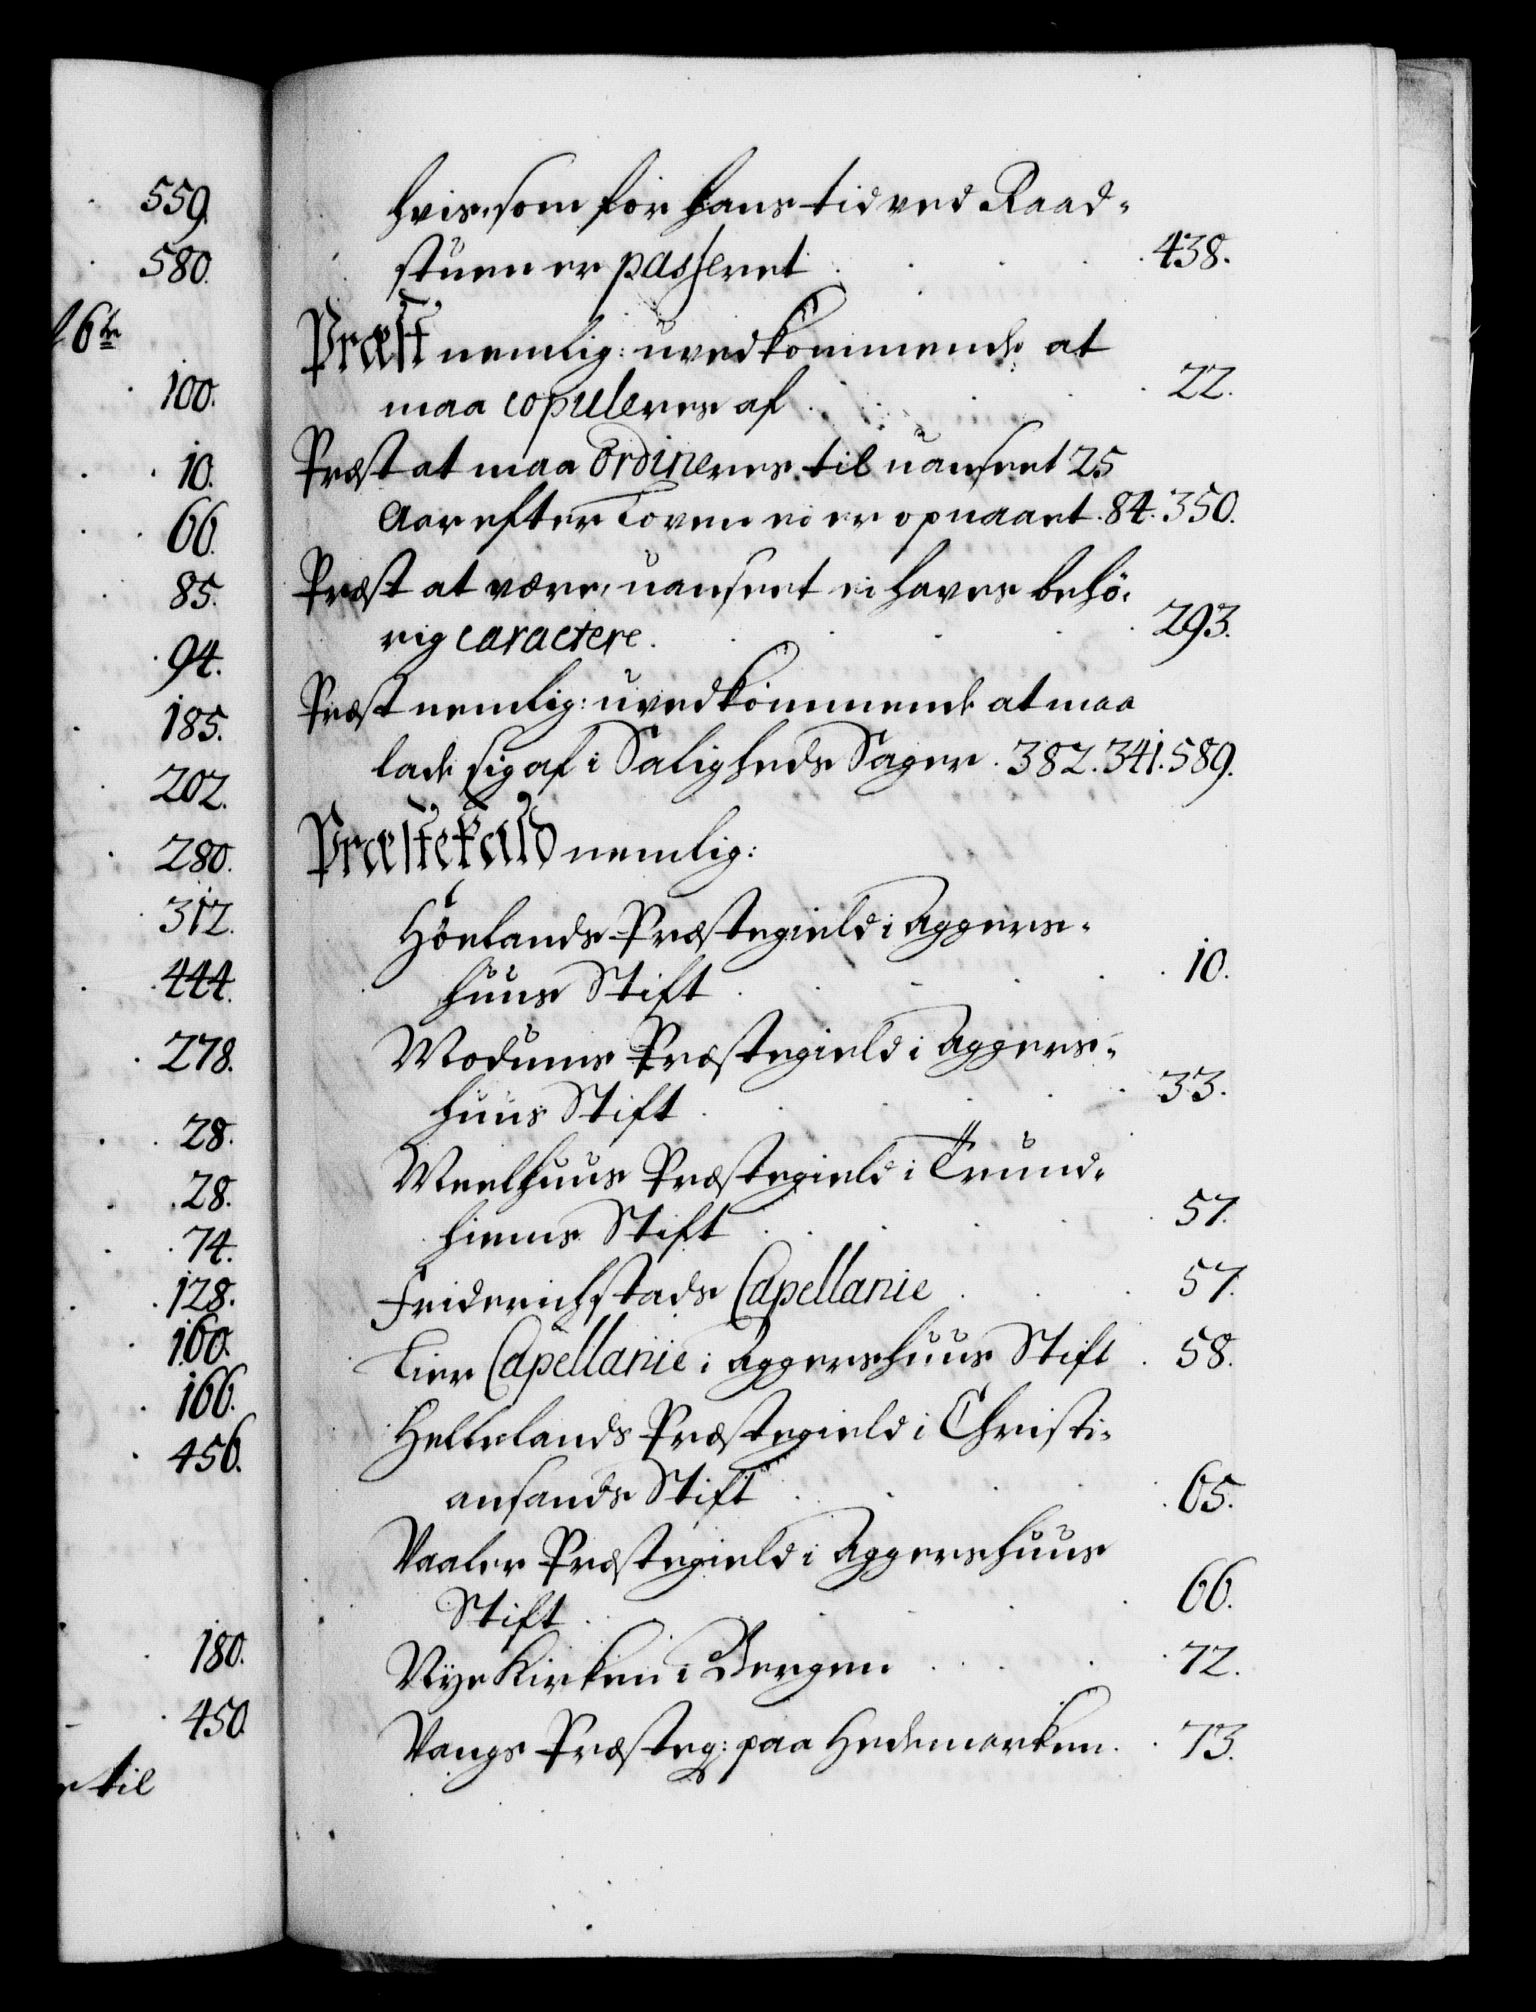 559.
580.
6te
100.
10.
66.
85.
94.
185.
202.
280.
312.
444.
278.
28.
28.
74.
128.
160.
166.
456.
180.
450
til
hvis, som for hans tid ved Raad-
stuen er passeret . . . . 438.
Præst nemlig: uvedkommende at
maa copuleres af . . . 22.
Præst at maa ordineres til uanseet 25
Aar efter Loven ei er opnaaet . 84. 350.
Præst at være, uanseet ei haver behö-
rig caractere . . . . 293.
Præst nemlig: uvedkommende at maa
lade sig af i Saligheds Sager . 382. 341. 589.
Præstekald nemlig:
Höelands Præstegield i Aggers-
huus Stift . . . . 10.
Modums Præstegield i Aggers-
huus Stift . . . . 33.
Meelhuus Præstegield i Trund-
hiems Stift . . . . 57.
Friderichstads Capellanie . . . 57.
Lier Capellanie i Aggershuus Stift . 58.
Hellelands Præstegield i Christi-
ansands Stift . . . . 65.
Vaaler Præstegield i Aggershuus
Stift . . . . 66.
Nye Kirken i Bergen . . . 72.
Vangs Præsteg: paa Hedemarken . . 73.